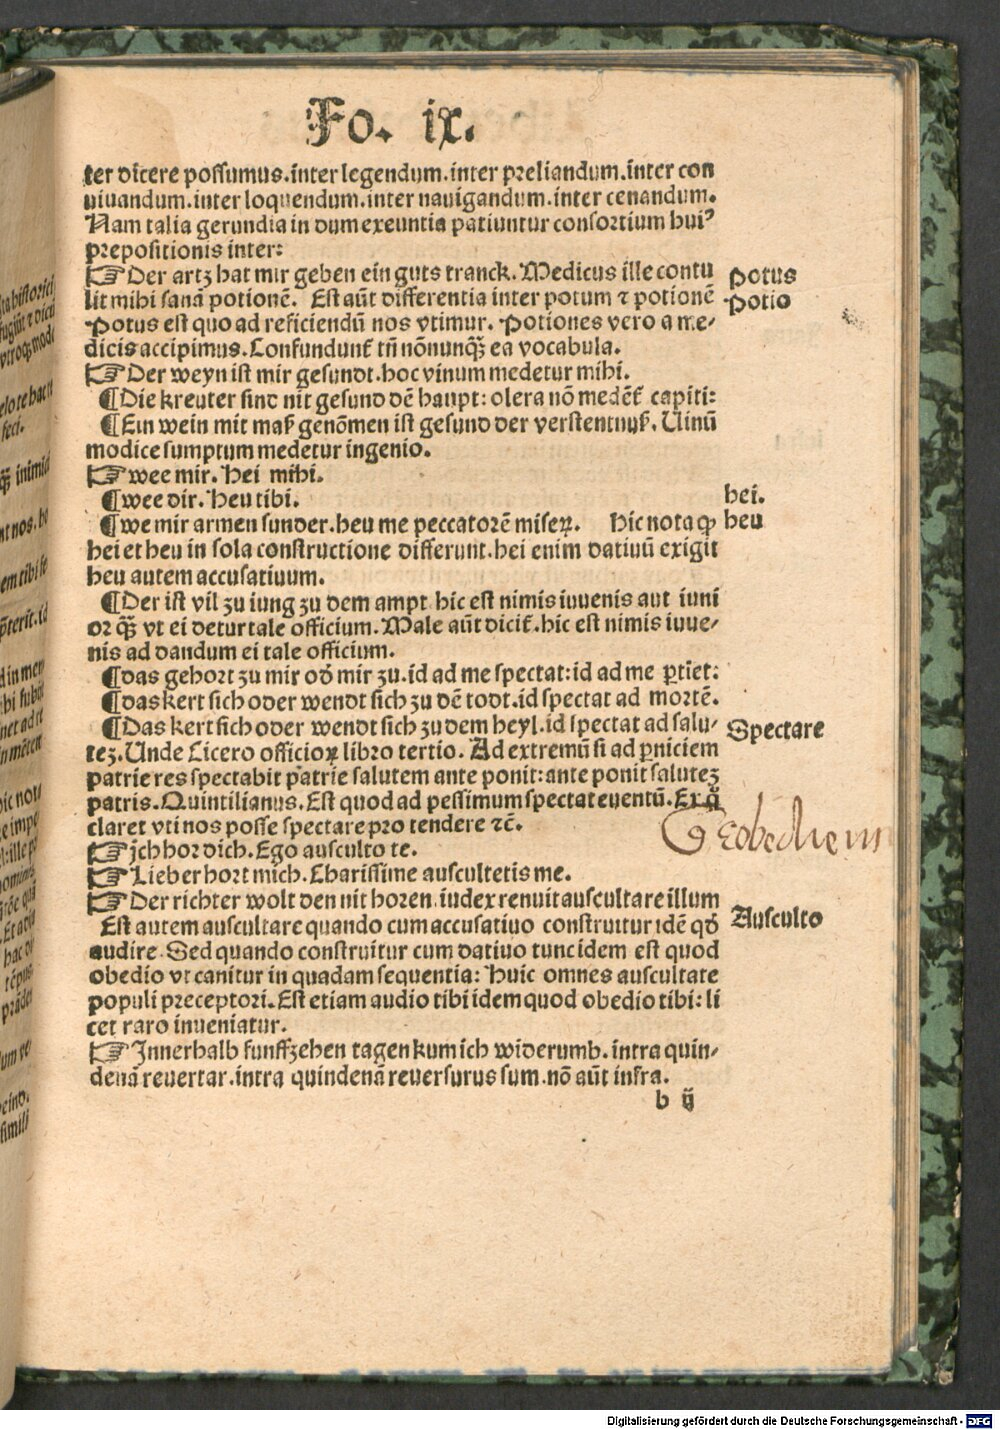 Fo. ix.
ter dicere possumus. inter legendum. inter preliandum. inter con
uiuandum. inter loquendum. inter nauigandum. inter cenandum.
Nam talia gerundia in dum exeuntia patiuntur consortium huiꝰ
prepositionis inter:
☞ Der artz hat mir geben ein guts tranck. Medicus ille contu
lit mihi sanā potionē. Est aūt differentia inter potum ⁊ potionē
Potus est quo ad reficiendū nos vtimur. Potiones vero a me-
dicis accipimus. Confundunt᷑ tñ nōnunq̄ꝫ ea vocabula.
☞ Der weyn ist mir gesundt. hoc vinum medetur mihi.
¶ Die kreuter sind nit gesund dē haupt: olera nō medēt᷑ capiti:
¶ Ein wein mit maß genōmen ist gesund der verstentnuß. Uinū
modice sumptum medetur ingenio.
☞ wee mir. Hei mihi.
¶ wee dir. Heu tibi.
¶ we mir armen sunder. heu me peccatorē miseꝝ. Hic nota ꝙ
hei et heu in sola constructione differunt. hei enim datiuū exigit
heu autem accusatiuum.
¶ Der ist vil zu iung zu dem ampt hic est nimis iuuenis aut iuni
or q̄ꝫ vt ei detur tale officium. Male aūt dicit᷑. hic est nimis iuue-
nis ad dandum ei tale officium.
¶ das gehort zu mir oď mir zu. id ad me spectat: id ad me ꝑtiet:
¶ das kert sich oder wendt sich zu dē todt. id spectat ad mortē.
¶ Das kert sich oder wendt sich zu dem heyl. id spectat ad salu-
teꝫ. Unde Cicero officioꝝ libro tertio. Ad extremū si ad ꝑniciem
patrie res spectabit patrie salutem ante ponit: ante ponit saluteꝫ
patris. Quintilianus. Est quod ad pessimum spectat euentū. Ex q̄
claret vti nos posse spectare pro tendere ⁊č.
☞ ich hor dich. Ego ausculto te.
☞ Lieber hort mich. Charissime auscultetis me.
☞ Der richter wolt den nit horen. iudex renuit auscultare illum
Est autem auscultare quando cum accusatiuo construitur idē qď
audire. Sed quando construitur cum datiuo tunc idem est quod
obedio vt canitur in quadam sequentia: Huic omnes auscultate
populi preceptori. Est etiam audio tibi idem quod obedio tibi: li
cet raro inueniatur.
☞ Innerhalb funffzehen tagen kum ich widerumb. intra quin-
denā reuertar. intra quindenā reuersurus sum. nō aūt infra.
b ij
Potus
Potio
hei.
heu
Spectare
Ausculto